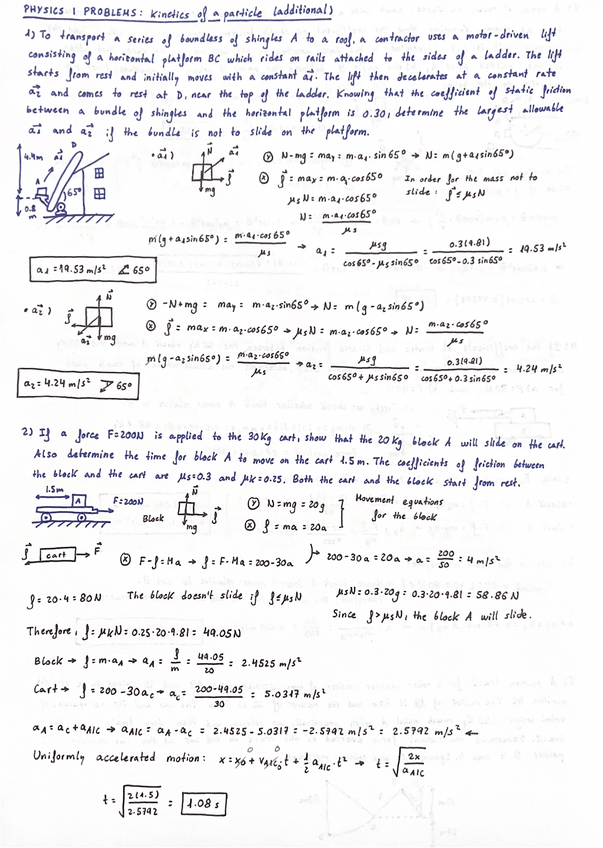 PHYSICS 1 PROBLEMS: Kinetics of a particle (additional)
1) To transport a series of boundless of shingles A to a roof, a contractor uses a motor-driven lift
consisting of a horizontal platform BC which rides on rails attached to the sides of a ladder. The lift
starts from rest and initially moves with a constant a⃗1. The lift then decelerates at a constant rate
a⃗2 and comes to rest at D, near the top of the ladder. Knowing that the coefficient of static friction
between a bundle of shingles and the horizontal platform is 0.30, determine the largest allowable
a⃗1 and a⃗2 if the bundle is not to slide on the platform.
4.4m a⃗1 D
A
65°
0.8 m
• a⃗1) N⃗ a⃗1 f⃗ mg
Ⓨ N-mg = may = m·a1·sin65° → N = m(g+a1sin65°)
Ⓧ f⃗ = max = m·a1·cos65°
In order for the mass not to
slide: f⃗ ≤ μsN
μsN = m·a1·cos65°
N = m·a1·cos65° / μs
m(g+a1sin65°) = m·a1·cos65° / μs → a1 = μsg / cos65°-μssin65° = 0.3(9.81) / cos65°-0.3sin65° = 19.53 m/s²
a1 = 19.53 m/s² 65°
• a⃗2) N⃗ f⃗ a⃗2 mg
Ⓨ -N+mg = may = m·a2·sin65° → N = m(g-a2sin65°)
Ⓧ f⃗ = max = m·a2·cos65° → μsN = m·a2·cos65° → N = m·a2·cos65° / μs
m(g-a2sin65°) = m·a2·cos65° / μs → a2 = μsg / cos65°+μssin65° = 0.3(9.81) / cos65°+0.3sin65° = 4.24 m/s²
a2 = 4.24 m/s² 65°
2) If a force F=200N is applied to the 30Kg cart, show that the 20Kg block A will slide on the cart.
Also determine the time for block A to move on the cart 1.5m. The coefficients of friction between
the block and the cart are μs=0.3 and μk=0.25. Both the cart and the block start from rest.
1.5m A F=200N
Block N⃗ f⃗ mg
Ⓨ N = mg = 20g
Ⓧ f = ma = 20a
Movement equations
for the block
f⃗ cart F⃗
Ⓧ F-f = Ma → f = F-Ma = 200-30a
200-30a = 20a → a = 200/50 = 4 m/s²
f = 20·4 = 80N The block doesn't slide if f ≤ μsN
μsN = 0.3·20g = 0.3·20·9.81 = 58.86N
Since f > μsN, the block A will slide.
Therefore, f = μkN = 0.25·20·9.81 = 49.05N
Block → f = m·aA → aA = f/m = 49.05/20 = 2.4525 m/s²
Cart → f = 200-30ac → ac = 200-49.05 / 30 = 5.0317 m/s²
aA = ac + aA/c → aA/c = aA - ac = 2.4525-5.0317 = -2.5792 m/s² = 2.5792 m/s² ←
Uniformly accelerated motion: x = x0 + vA/c0·t + 1/2 aA/c·t² → t = √(2x / aA/c)
t = √(2(1.5) / 2.5792) = 1.08s